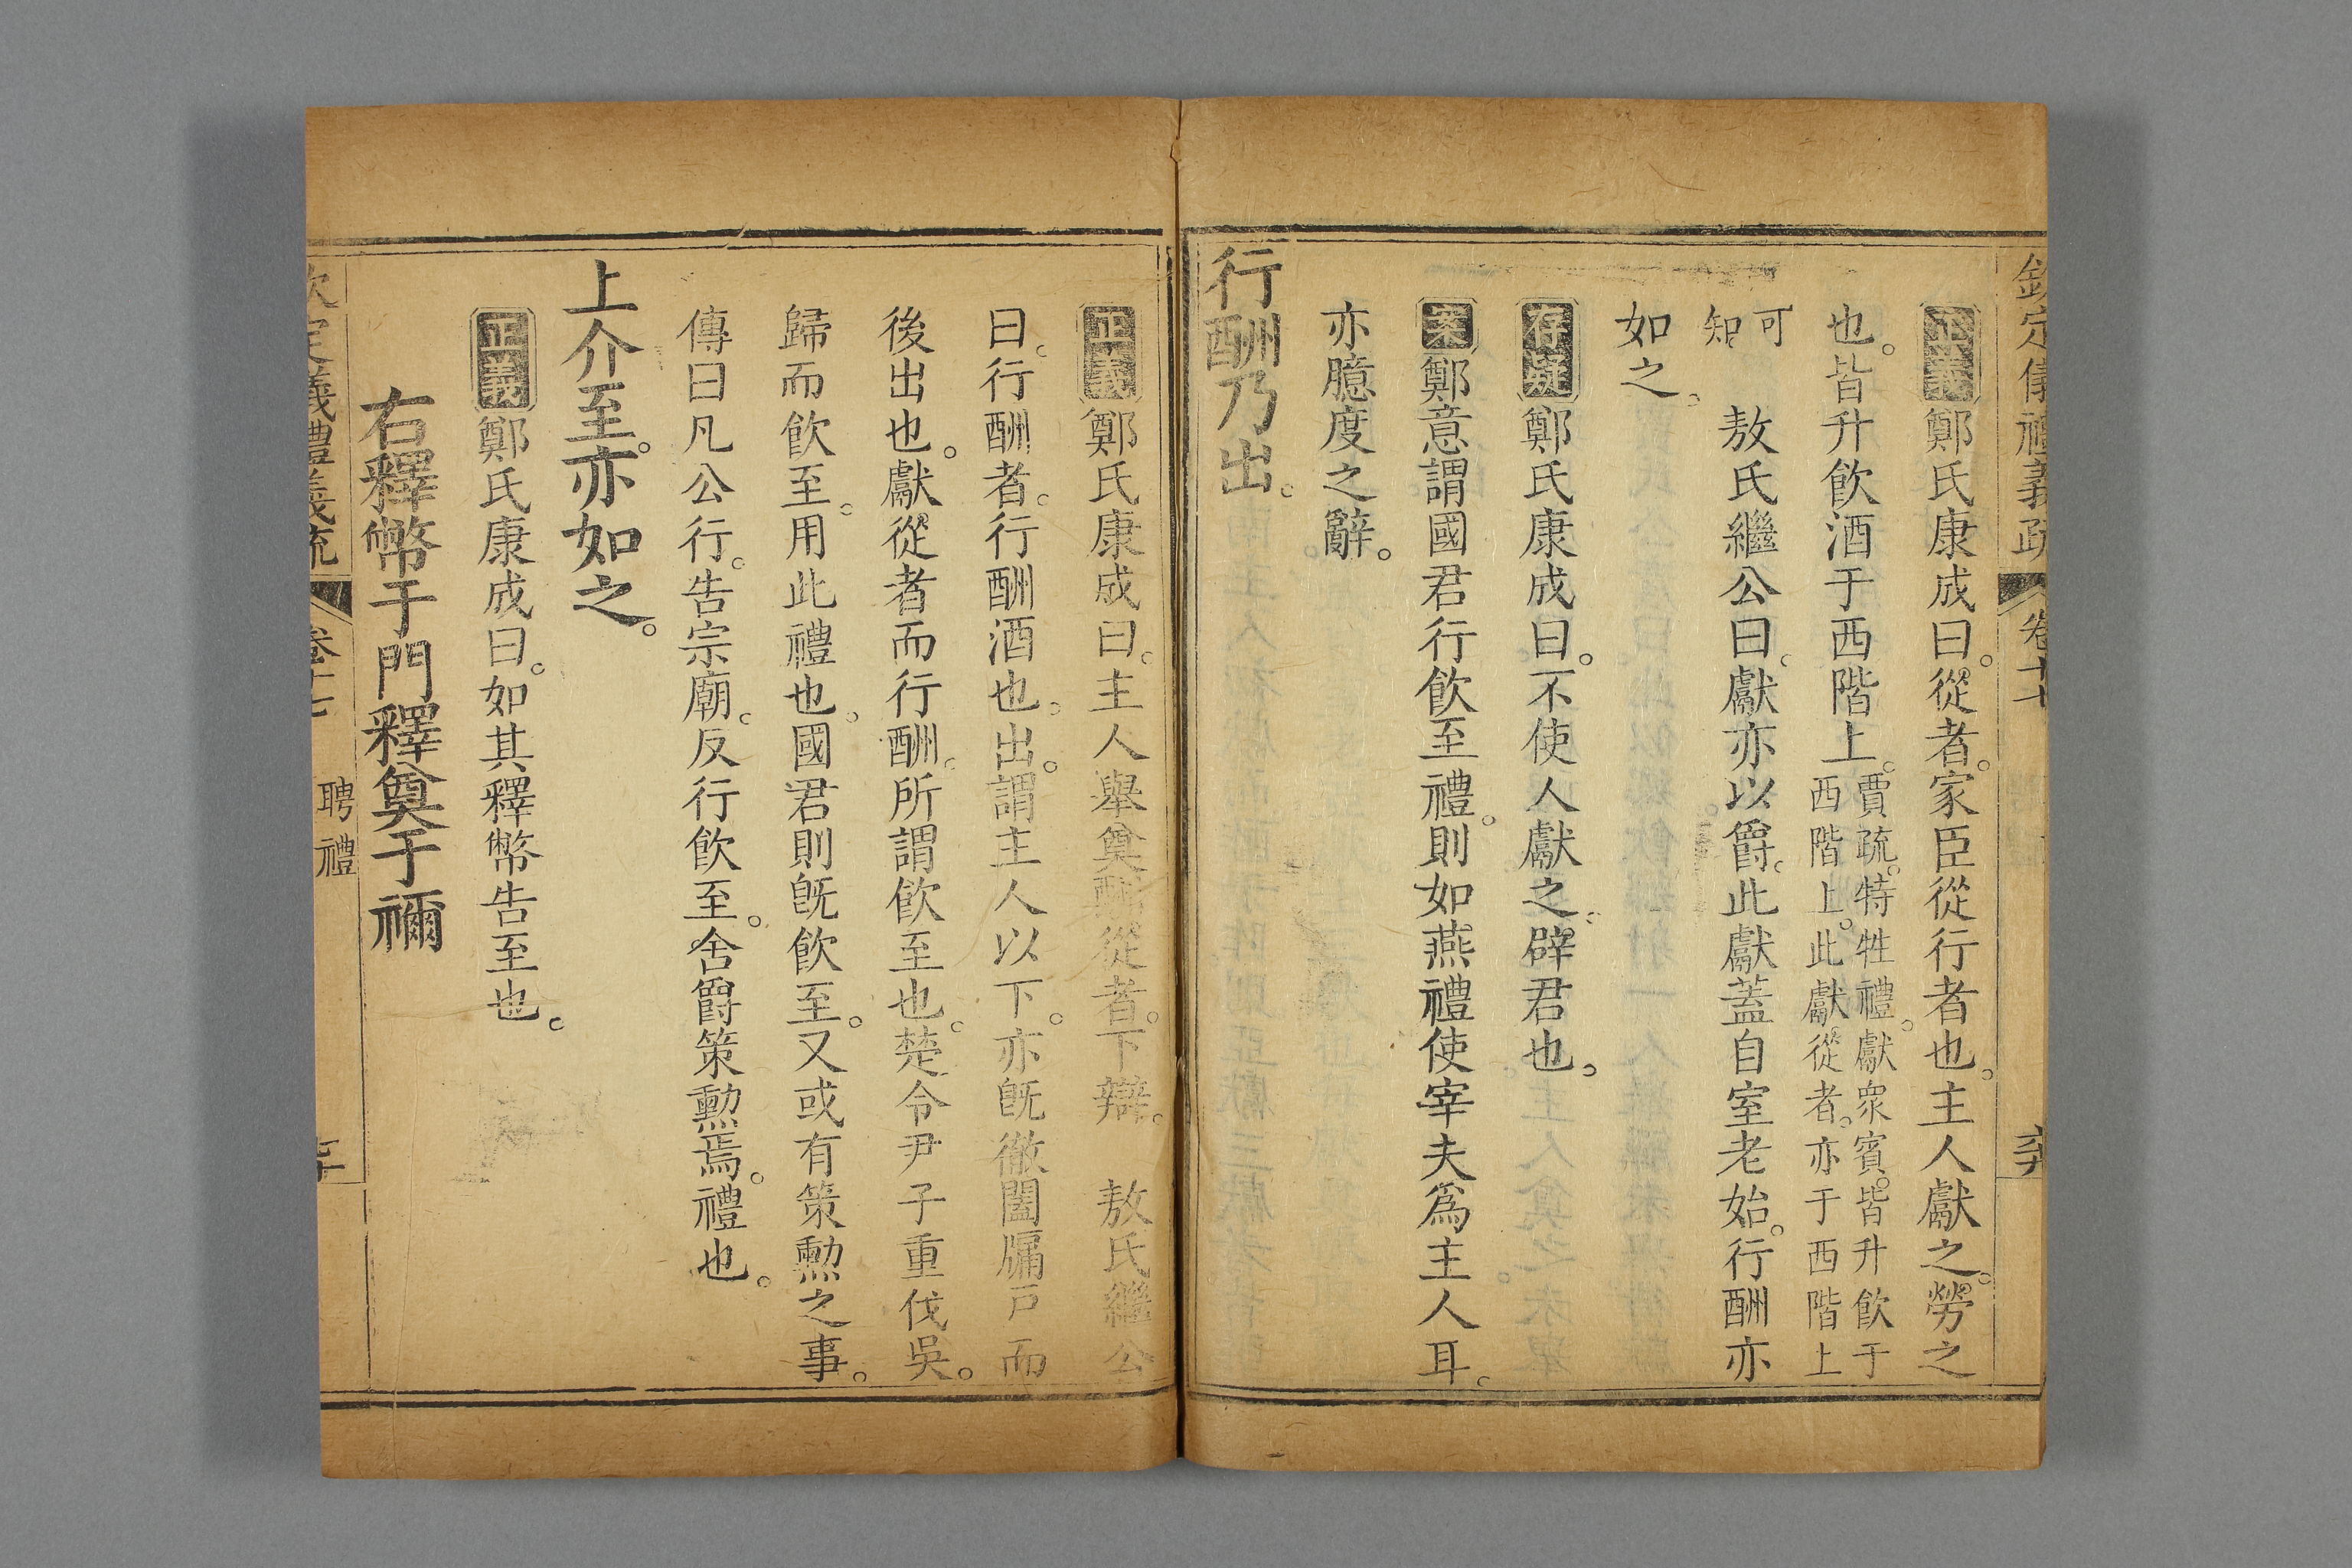 欽定儀禮義疏 卷十七
正義鄭氏康成曰。從者。家臣從行者也。主人獻之。勞之
也。皆升飲酒于西階上。賈疏。特牲禮。獻衆賓。皆升飲于西階上。此獻從者。亦于西階上
可知 敖氏繼公曰。獻亦以爵。此獻蓋自室老始。行酬亦
如之。
存疑鄭氏康成曰。不使人獻之。辟君也。
案鄭意謂國君行飲至禮。則如燕禮使宰夫爲主人耳。
亦臆度之辭。
行酬乃出。
正義鄭氏康成曰。主人舉奠酬從者。下辯。 敖氏繼公
曰。行酬者。行酬酒也。出。謂主人以下。亦旣徹闔牖戶而
後出也。獻從者而行酬。所謂飲至也。楚令尹子重伐吳。
歸而飲至。用此禮也。國君則旣飲至。又或有策勳之事。
傳曰凡公行。告宗廟。反行飲至。舍爵策勳焉。禮也。
上介至。亦如之。
正義鄭氏康成曰。如其釋幣告至也。
右釋幣于門釋奠于禰
欽定儀禮義疏 卷十七 聘禮